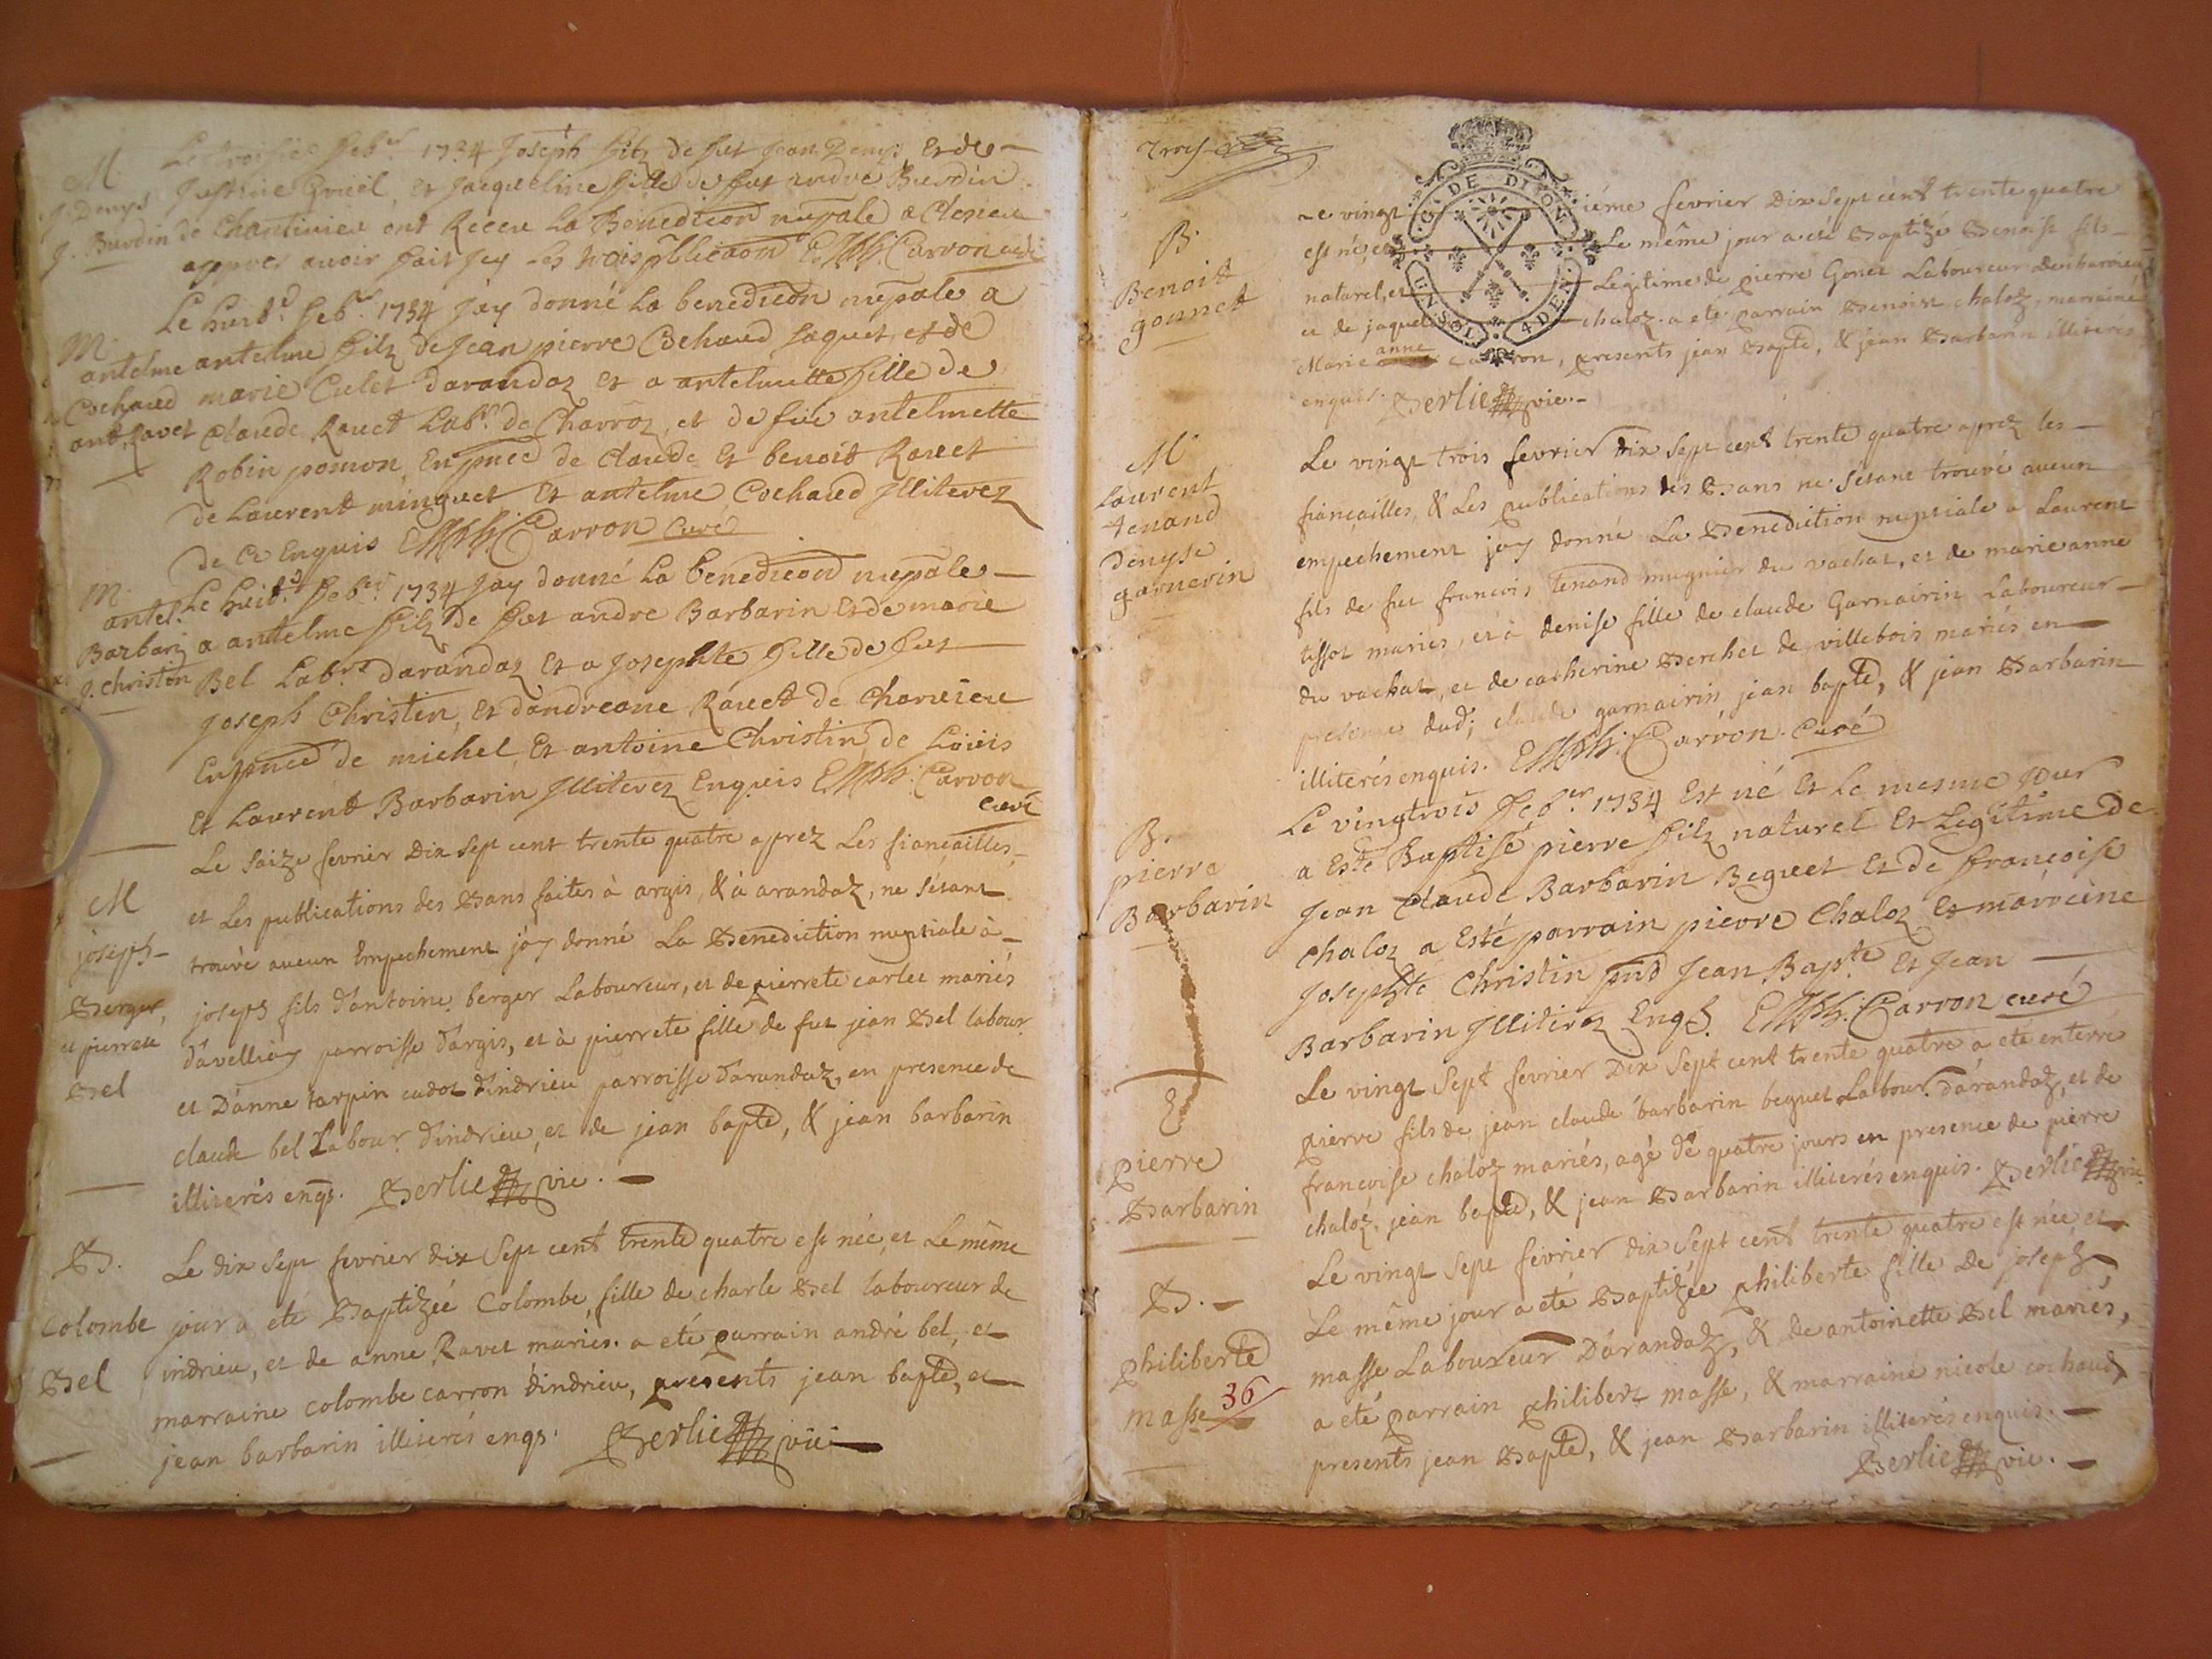 M. Le troisie febr 1734 Joseph filz de fut Jean Denys Et de
J. Denys Justine Gruel, et Jacqueline fille de fut andre Burdin
J. Burdin de Chantiniere ont Receu La Benedicon nupale a
appres avoir fait Jcy les trois pblicaons Carron curé
Le huitd. febr. 1734 Jay donné La benedicon nupale a
M. antelme antelme filz de Jean pierre Cochaud Jaquet, et de
Cochaud marie Culet darandaz et a antelmette fille de
ant. Ravet Claude Ravet Labr. de Charvoz, et de fue antelmette
Robin pomon, En pnce de Claude Et benoit Ravet
de Laurent minguet Et antelme Cochaud Jlliterez
de Ce Enquis Carron Curé
M. Le huitd. febr. 1734 Jay donné La benedicon nupale
antel. Barbarin a antelme filz de fut andre Barbarin Et de marie
J. Christin Bel Labr. darandaz Et a Josephte fille de fut
Joseph Christin, Et dandreane Ravet de Charvieu
En pnce de michel, Et antoine Christin de Loüis
Et Laurent Barbarin Jlliterez Enquis Carron
curé
Le saize fevrier Dix sept cent trente quatre aprez Les fiançailles,
M et Les publications des Bans faites à argis, & à arandaz, ne sétant
joseph trouvé aucun Empechement jay donné La Benediction nuptiale à
Berger, joseph fils d'antoine berger Laboureur, et de pierrete carlet mariés
et pierrete d'avelliay parroisse d'argis, et à pierrete fille de fut jean Bel labour.
Bel et D'anne tarpin cudot d'indrieu parroisse d'arandaz, en presence de
claude bel Labour. d'indrieu, et de jean bapte, & jean barbarin
illiterés enqs. Berlie vic.
B. Le dix sept fevrier dix Sept cent trente quatre est née, et Le même
Colombe jour a eté Baptizéé Colombe, fille de charle Bel laboureur de
Bel indrieu, et de anne Ravet mariés. a eté parrain andré bel, et
marraine colombe carron d'indrieu, presents jean bapte, et
jean barbarin illiterés enqs. Berlie vic
Troys
G. DE DIJON
UN SOL. 4 DEN.
Le vingt ième fevrier Dix Sept cent trente quatre
B. est né, et Le même jour a eté Baptizé Benoist fils
Benoit naturel, et Legitime de pierre Gonet Laboureur
gonnet et de jaquet chaloz. a eté parrain Benoist chaloz, marraine
Marie anne carron, presents jean Bapte, & jean Barbarin illiterés
enquis. Berlie vic.
M Le vingt trois fevrier Dix Sept cent trente quatre aprez les
Laurent fiançailles, & Les publications des Bans ne sétant trouvé aucun
tenand empechement jay donné La Benediction nuptiale a Laurent
Denyse fils de fut francois Tenand mugnier du vachat, et de marie anne
garnerin tissot mariés, et à denise fille de claude Garnairin Laboureur
du vachat, et de catherine Perchet de villebois mariés, en
presence dud; claude garnairin, jean bapte, & jean Barbarin
illiterés enquis. Carron Curé
Le vingtrois febr 1734 Est né Et Le mesme jour
B. a Esté Baptisé pierre filz naturel Et Legitime de
pierre Jean Claude Barbarin Beguet Et de francoise
Barbarin Chaloz a Esté parrain pierre Chaloz Et maroeine
Josephte Christin pnd Jean Bapte Et Jean
Barbarin Jlliterez Enqs. Carron curé
Le vingt Sept fevrier Dix Sept cent trente quatre a eté enterré
E pierre fils de jean claude barbarin beguet Labour. D'arandaz, et de
pierre francoise chaloz mariés, agé de quatre jours en presence de pierre
Barbarin chaloz, jean bapte, & jean Barbarin illiterés enquis. Berlie vic.
Le vingt Sept fevrier Dix Sept cent trente quatre est née, et
B. Le même jour a eté Baptizée philiberte fille de joseph
philiberte masse Laboureur D'arandaz, & de antoinette Bel mariés,
masse 36 a eté parrain philibert masse, & marraine nicole cochaud,
presents jean Bapte, & jean Barbarin illiterés enquis.
Berlie vic.